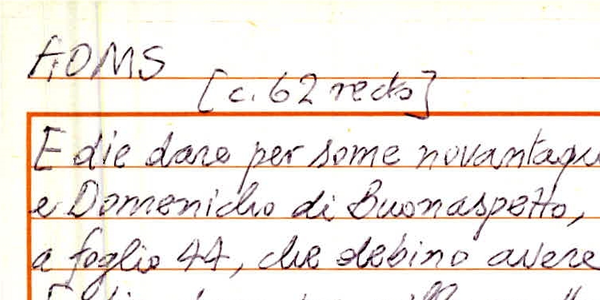 AOMS
[c. 62 recto]
E die dare per some novantaqu
e Domenicho di Buonaspetto,
a foglio 44, che debino avere